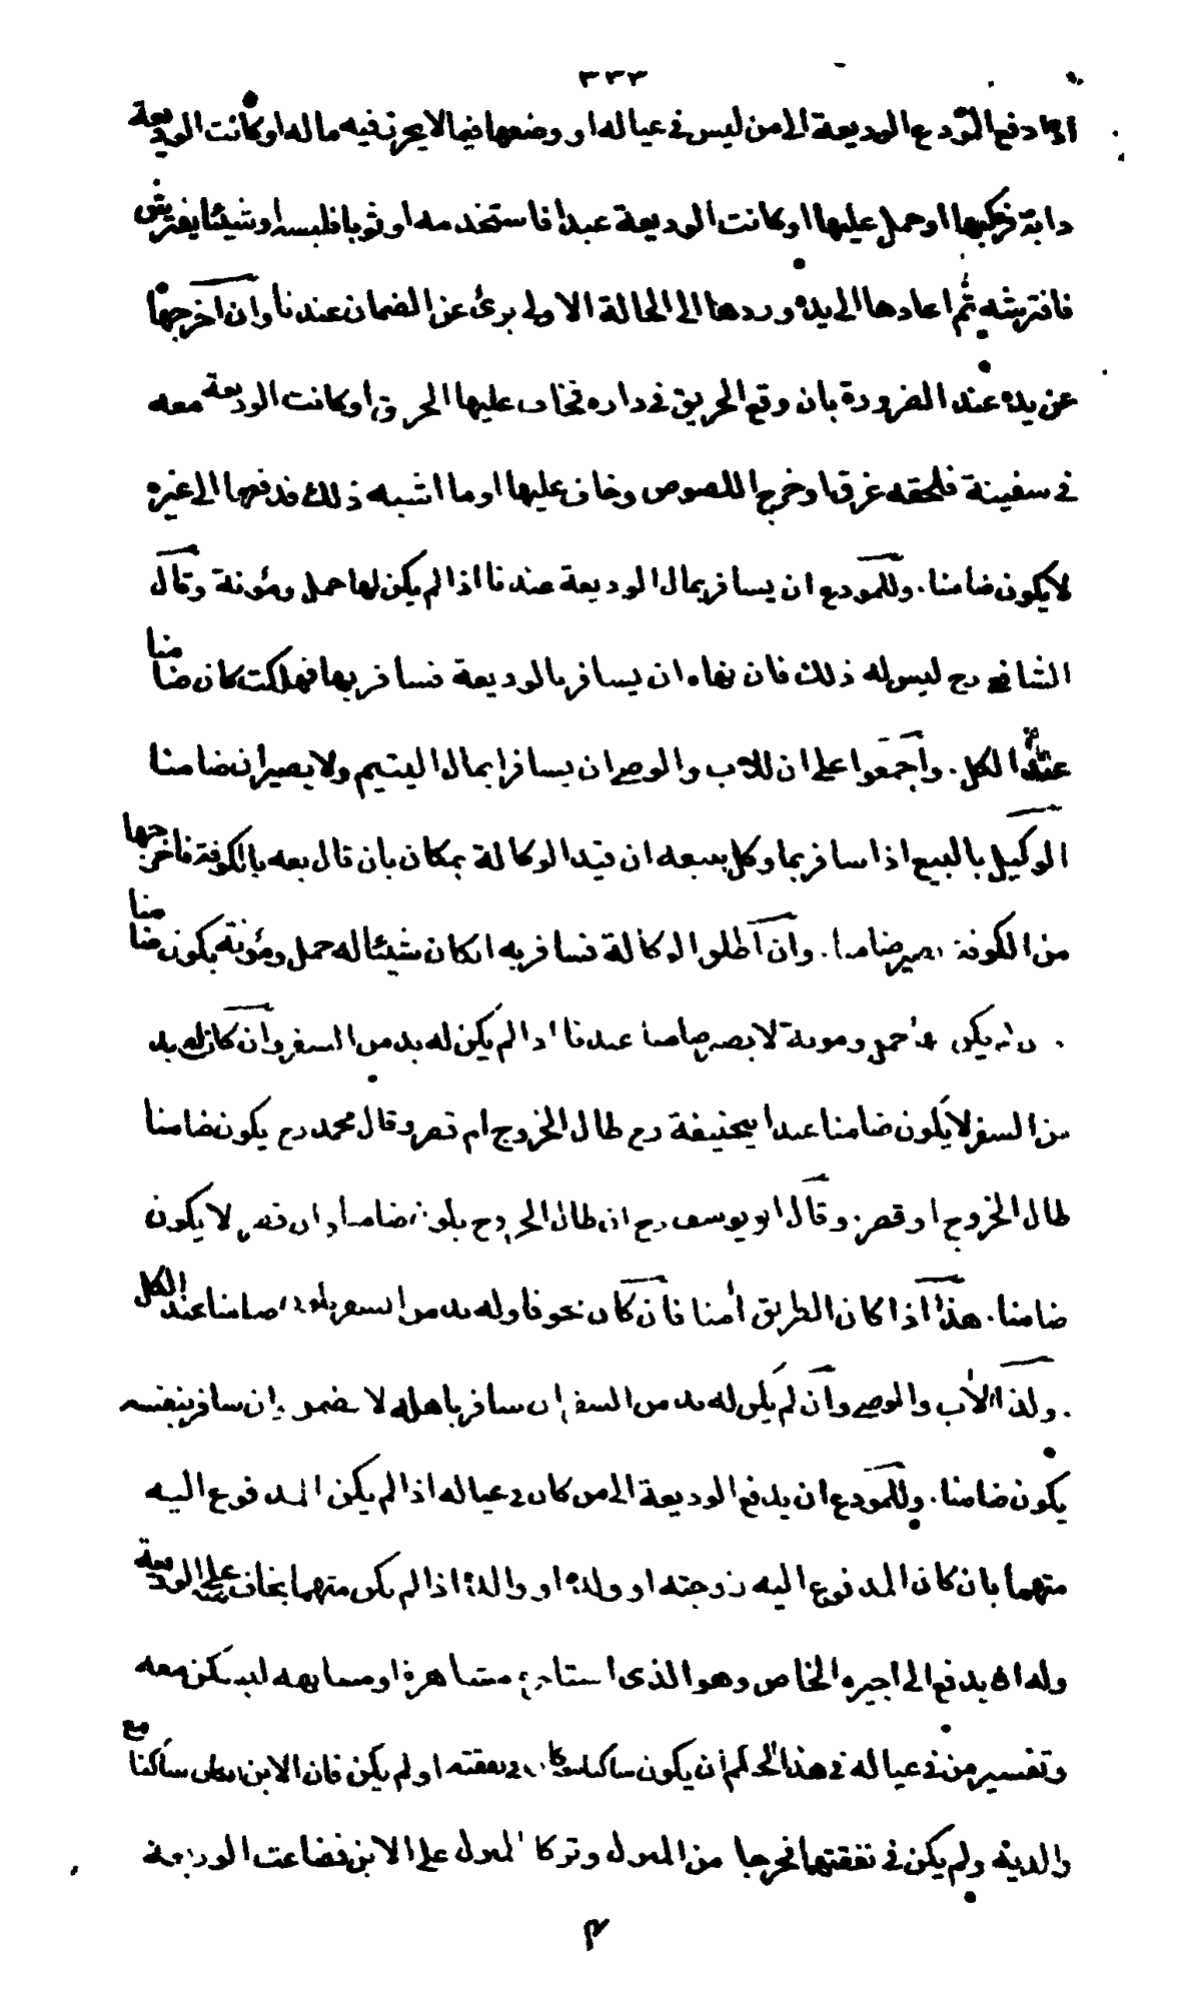 ٣٣٣
اذا دفع المودع الوديعة الى من ليس فى عياله او وضعها فيما لا يحرز فيه ماله او كانت الوديعة
دابة فركبها او حمل عليها او كانت الوديعة عبدا فاستخدمه او ثوبا فلبسه او شيئا يفترش
فافترشه ثم اعادها الى يده وردها الى الحالة الاولى برئ عن الضمان عندنا وان اخرجها
عن يده عند الضرورة بان وقع الحريق فى داره فخاف عليها الحرق او كانت الوديعة معه
فى سفينة فلحقه غرق او خرج اللصوص وخاف عليها او ما اشبه ذلك فدفعها الى غيره
لا يكون ضامنا . وللمودع ان يسافر بمال الوديعة عندنا اذا لم يكن لها حمل ومؤنة وقال
الشافعى رح ليس له ذلك فان نهاه ان يسافر بالوديعة فسافر بها فهلكت كان ضامنا
عند الكل . واجمعوا على ان للاب والوصى ان يسافرا بمال اليتيم ولا يصيران ضامنا
الوكيل بالبيع اذا سافر بما وكل ببيعه ان قيد الوكالة بمكان بان قال بعه بالكوفة فاخرجها
من الكوفة يصير ضامنا . وان اطلق الوكالة فسافر به ان كان شيئا له حمل ومؤنة يكون ضامنا
يكن حمل ومونة لا يصير ضامنا عندنا اذا لم يكن له بد من السفر وان كان له بد
من السفر لا يكون ضامنا عند ابيحنيفة رح طال الخروج ام قصر وقال محمد رح يكون ضامنا
طال الخروج او قصر وقال ابو يوسف رح ان طال الخروج يكون ضامنا وان قصر لا يكون
ضامنا . هذا اذا كان الطريق أمنا فان كان خوفا وله بد من السفر يكون ضامنا عند الكل
. وكذا الأب والوصى وان لم يكن له بد من السفر ان سافر باهله لا يضمن وان سافر بنفسه
يكون ضامنا . وللمودع ان يدفع الوديعة الى من كان فى عياله اذا لم يكن المدفوع اليه
متهما بان كان المدفوع اليه زوجته او ولده او والده اذا لم يكن متهما يخاف عليه على الوديعة
وله ان يدفع الى اجيره الخاص وهو الذى استاجره مشاهرة او مسانهة ليسكن معه
وتفسير من فى عياله فى هذا الحكم ان يكون ساكنا معه كان فى نفقته او لم يكن فان الابن اذا كان ساكنا مع
والديه ولم يكن فى نفقتهما فخرجا من المنزل وتركا المنزل على الابن فضاعت الوديعة